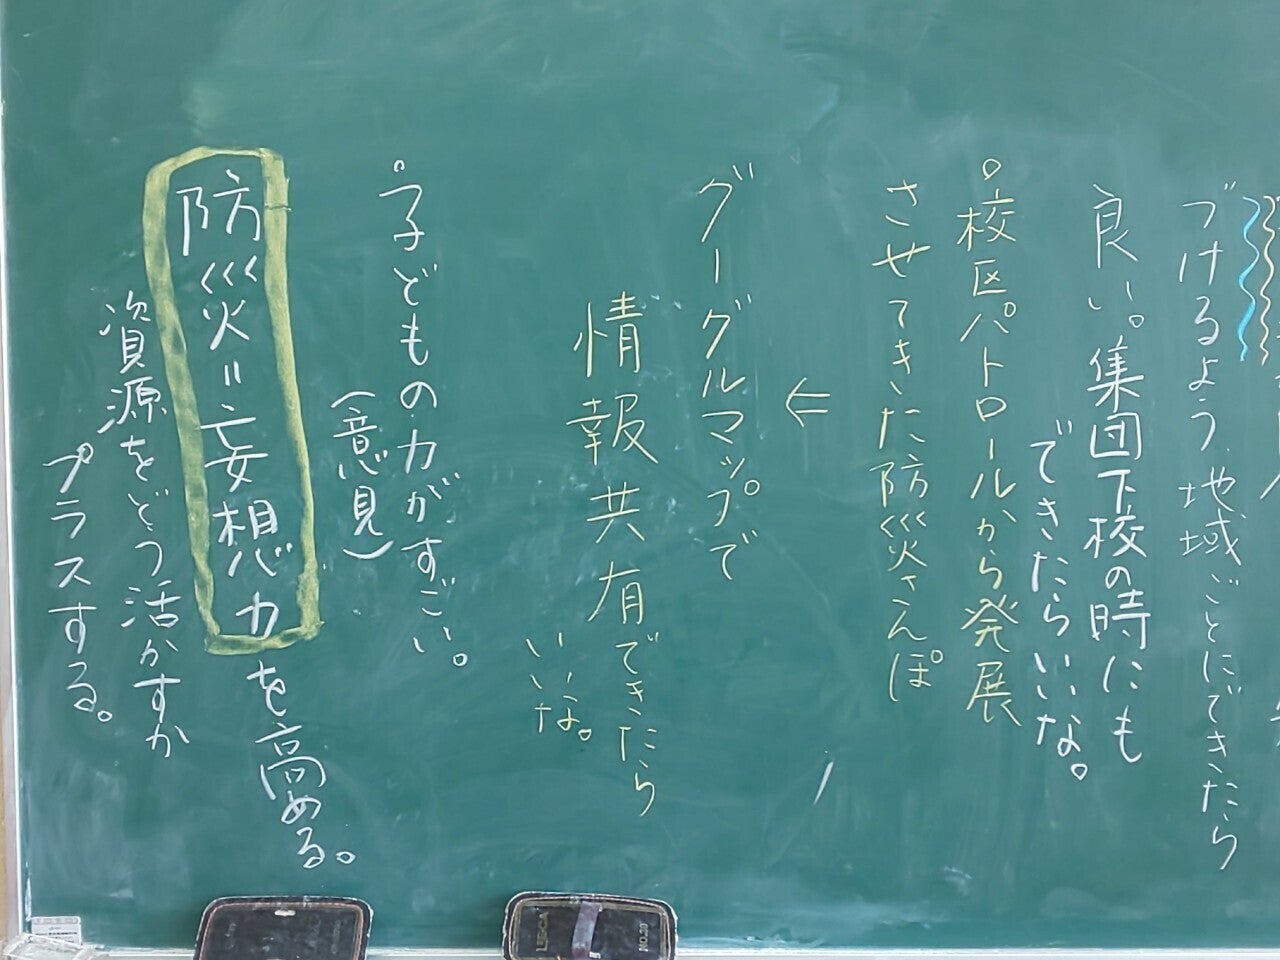 づけるよう、地域ごとにできたら
良い。集団下校の時にも
できたらいいな。
°校区パトロールから発展
させてきた防災さんぽ
⇐
グーグルマップで
情報共有できたら
いいな。
°子どもの力がすごい。
(意見)
防災=妄想力を高める。
資源をどう活かすか
プラスする。
LEGCA
NO.20